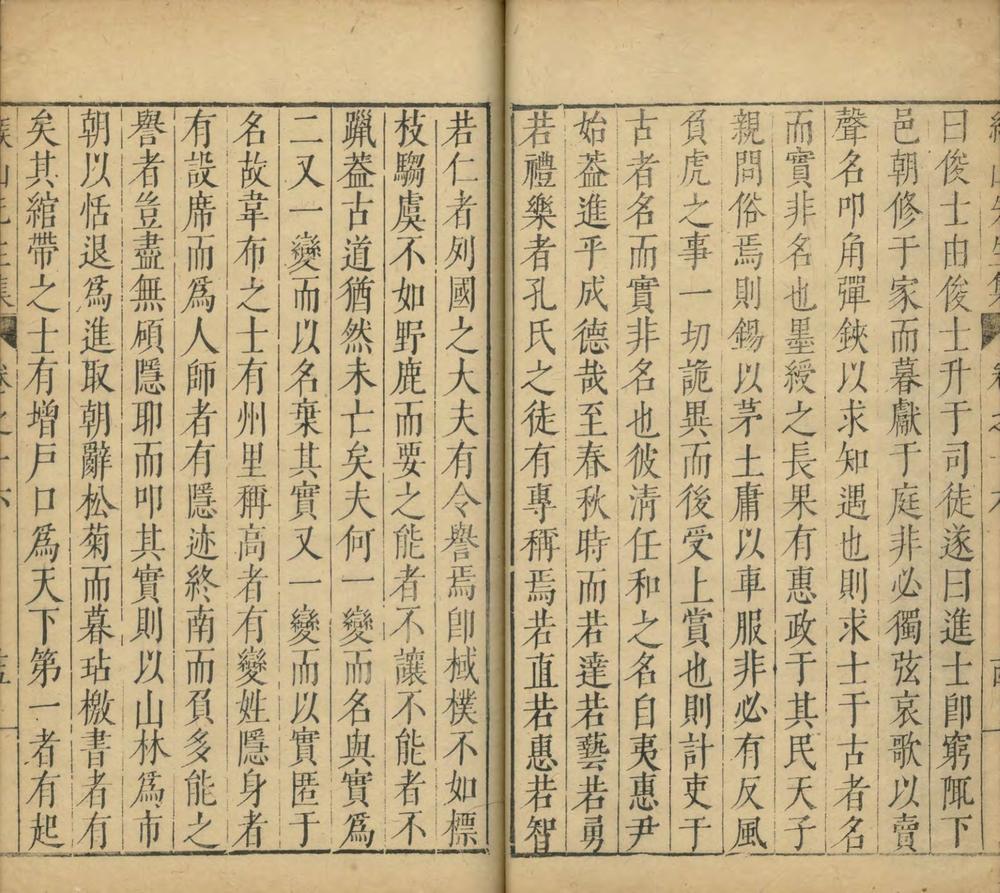 曰俊士由俊士升于司徒遂曰進士卽窮陬下
邑朝修于家而暮獻于庭非必獨弦哀歌以賣
聲名叩角彈鋏以求知遇也則求士于古者名
而實非名也墨綬之長果有惠政于其民天子
親問俗焉則錫以茅土庸以車服非必有反風
負虎之事一切詭異而後受上賞也則計吏于
古者名而實非名也彼淸任和之名自夷惠尹
始葢進乎成德哉至春秋時而若達若藝若勇
若禮樂者孔氏之徒有專稱焉若直若惠若智
若仁者列國之大夫有令譽焉卽棫樸不如標
枝騶虞不如野鹿而要之能者不讓不能者不
躐葢古道猶然未亡矣夫何一變而名與實爲
二又一變而以名棄其實又一變而以實匿于
名故韋布之士有州里稱高者有變姓隱身者
有設席而爲人師者有隱迹終南而負多能之
譽者豈盡無碩隱耶而叩其實則以山林爲市
朝以恬退爲進取朝辭松菊而暮玷檄書者有
矣其綰帶之士有增戶口爲天下第一者有起